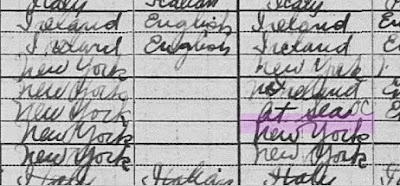 Italy Italian Italy
Ireland English Ireland E
Ireland English Ireland E
New York New York
New York Ireland E
New York At Sea C E
New York New York
New York New York
Italy Italian Italy